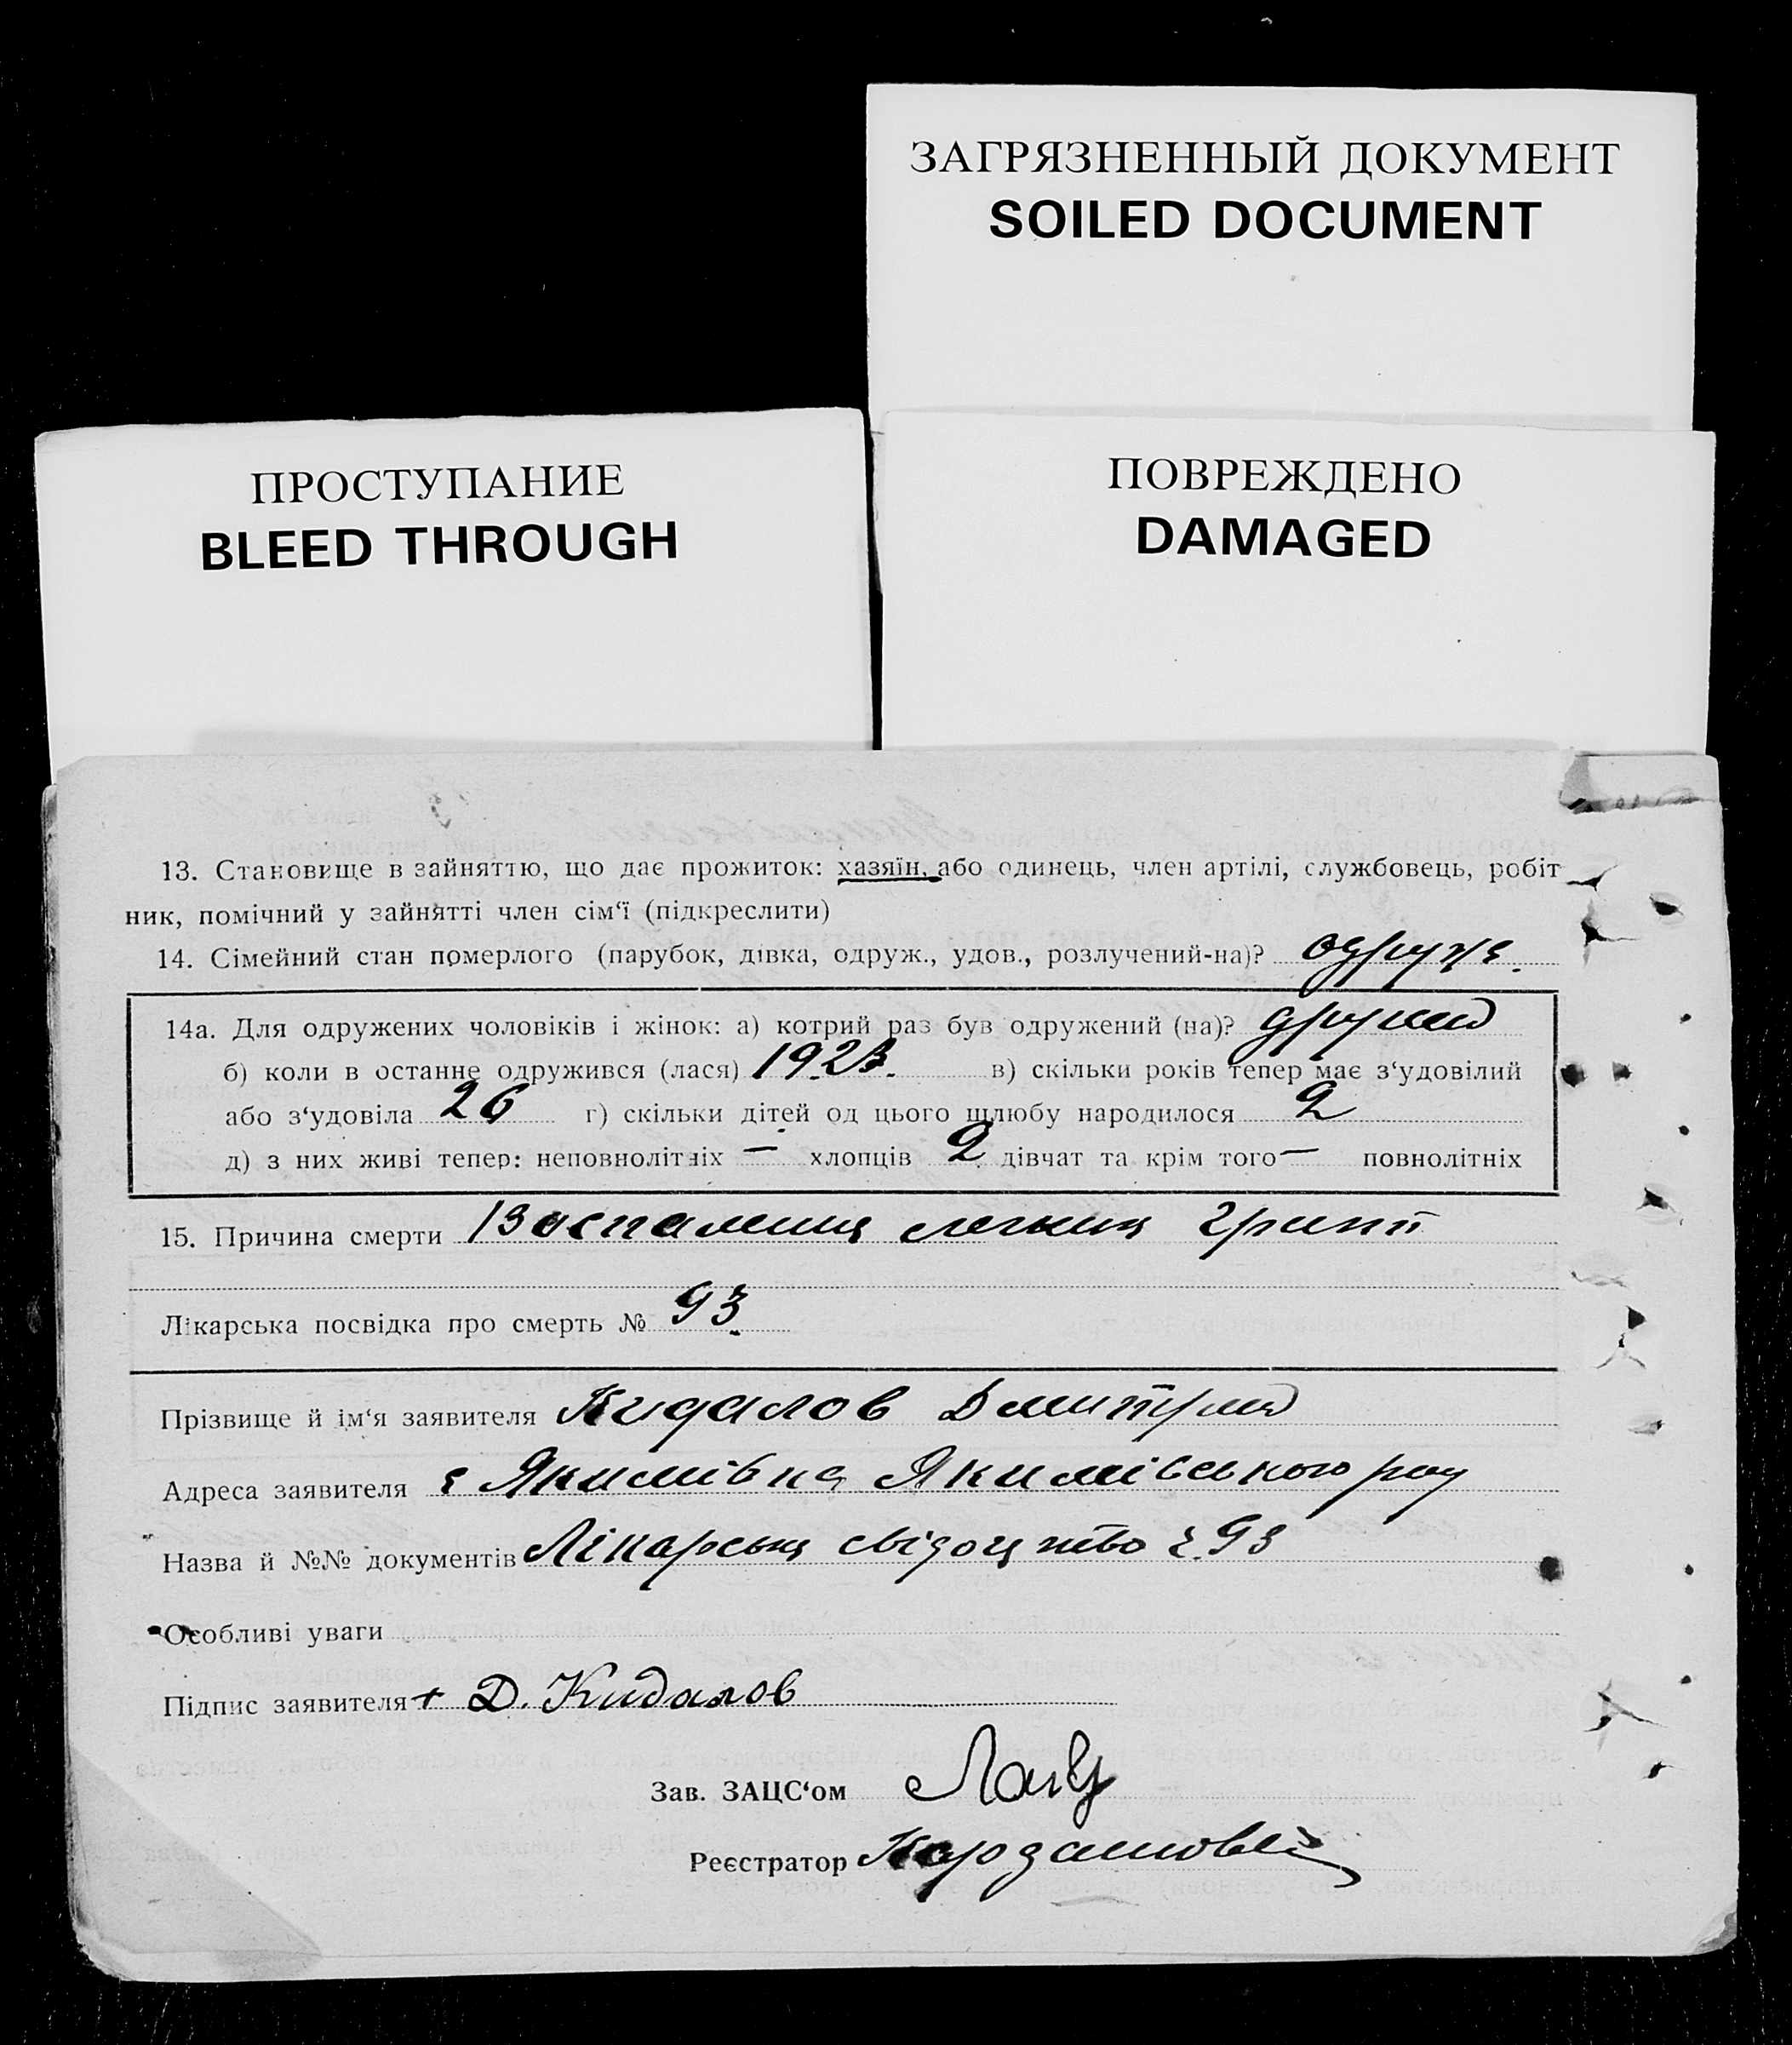 ЗАГРЯЗНЕННЫЙ ДОКУМЕНТ
SOILED DOCUMENT
ПРОСТУПАНИЕ
BLEED THROUGH
ПОВРЕЖДЕНО
DAMAGED
13. Становище в зайняттю, що дає прожиток: хазяїн, або одинець, член артілі, службовець, робіт-
ник, помічний у зайнятті член сім‘ї (підкреслити)
14. Сімейний стан померлого (парубок, дівка, одруж., удов., розлучений-на)? одруже.
14а. Для одружених чоловіків і жінок: а) котрий раз був одружений (на)? другий
б) коли в останнє одружився (лася) 1923. в) скільки років тепер має з‘удовілий
або з‘удовіла 26 г) скільки дітей од цього шлюбу народилося 2
д) з них живі тепер: неповнолітніх — хлопців 2 дівчат та крім того — повнолітніх
15. Причина смерти Воспаления легких грипп
Лікарська посвідка про смерть № 93
Прізвище й ім‘я заявителя Кидалов Дмитрий
Адреса заявителя с Якимівка Якимівського рну
Назва й №№ документів Лікарська свідоцтво ч. 93
Особливі уваги
Підпис заявителя + Д. Кидалов
Зав. ЗАЦС‘ом
Реєстратор